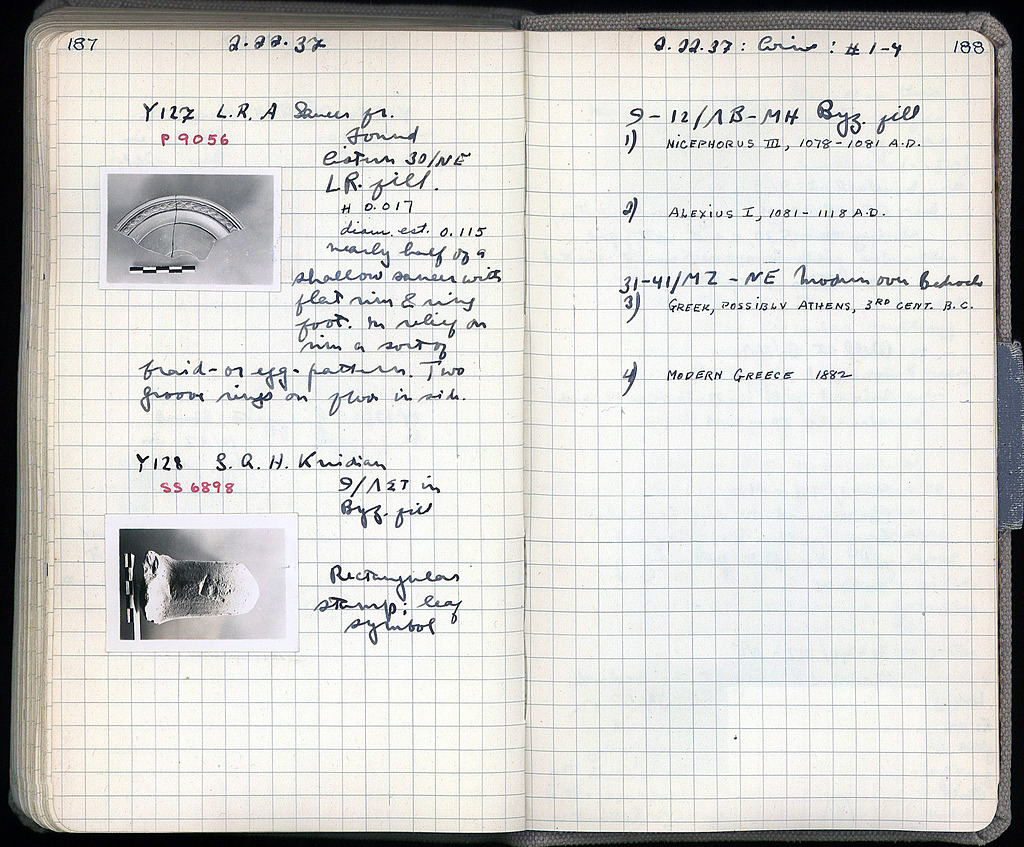 187
2.22.37
Y127 L.R. A Saucer fr.
P 9056
Found
Cistern 30/ΝΕ
L.R. fill.
H 0.017
diam. est. 0.115
nearly half of a
shallow saucer with
flat rim & ring
foot. In relief on
rim a sort of
braid- or egg-pattern. Two
groove rings on floor inside.
Y128 S.A.H. Knidian
SS 6898
9/ΛΣΤ in
Byz. fill
Rectangular
stamp; leaf
symbol
2.22.37: Coins: #1-4
188
9-12/ΛΒ-ΜΗ Byz. fill
1) NICEPHORUS III, 1078-1081 A.D.
2) ALEXIUS I, 1081-1118 A.D.
31-41/ΜΖ-ΝΕ Modern over Bedrock
3) GREEK, POSSIBLY ATHENS, 3RD CENT. B.C.
4) MODERN GREECE 1882